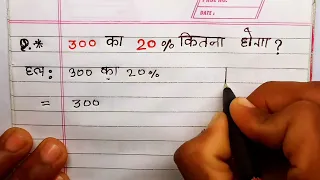 PAGE NO.
DATE:
Q.* 300 का 20% कितना होगा ?
हल: 300 का 20%
= 300